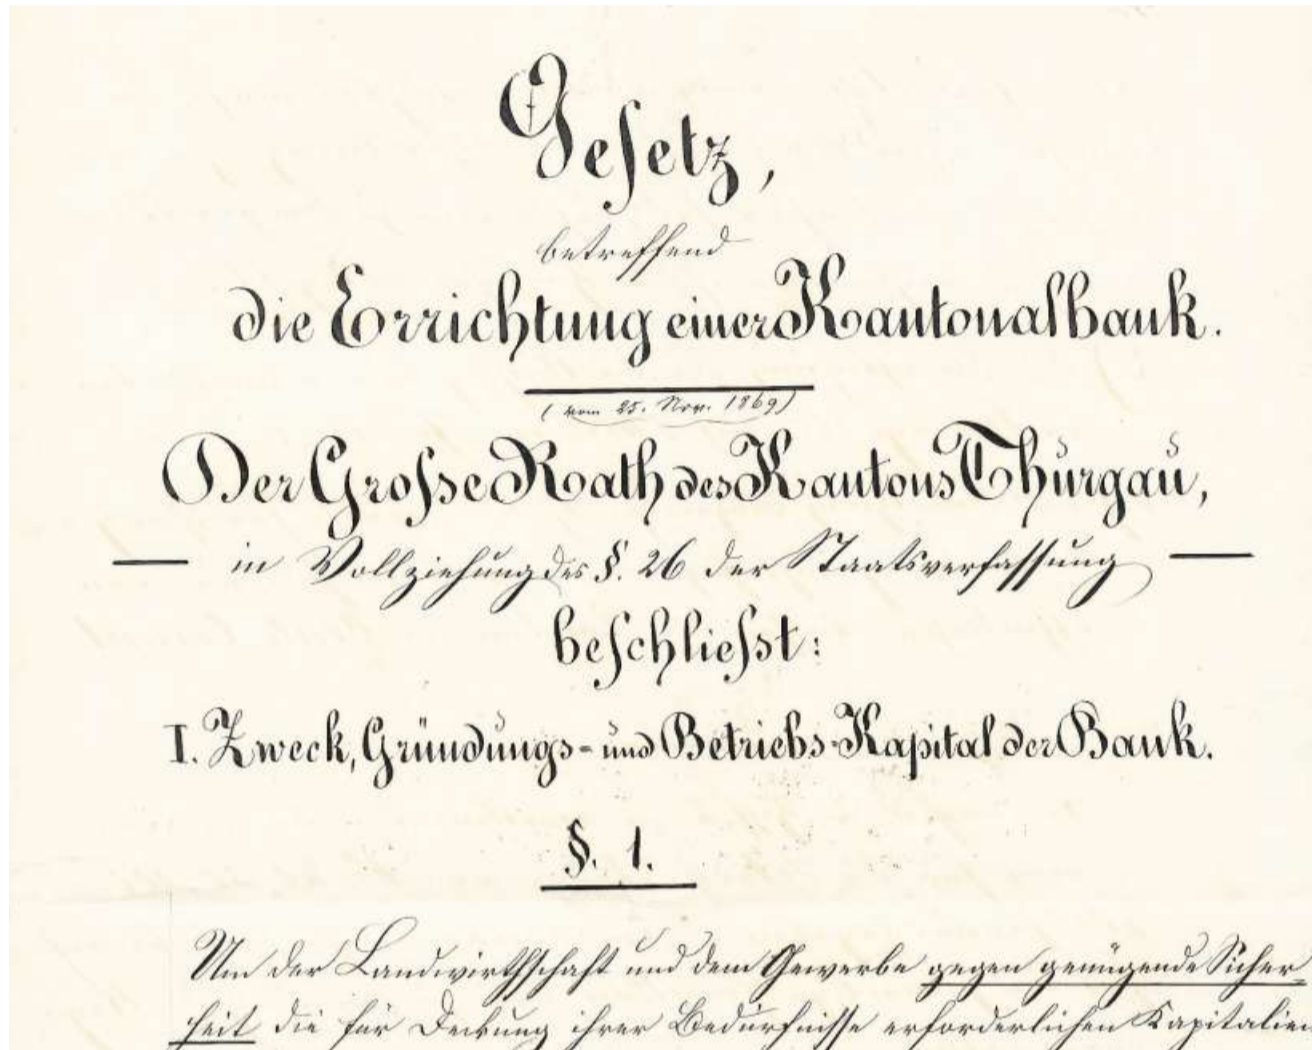 Gesetz,
betreffend
die Errichtung einer Kantonalbank.
(vom 25. Nov. 1869)
Der Grosse Rath des Kantons Thurgau,
— in Vollziehung des §. 26 der Staatsverfassung —
beschliesst:
I. Zweck, Gründungs- und Betriebs-Kapital der Bank.
§. 1.
Um der Landwirthschaft und dem Gewerbe gegen genügende Sicher=
heit die für Deckung ihrer Bedürfnisse erforderlichen Kapitalien